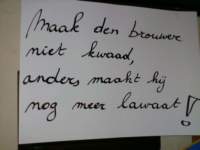 Maak den brouwer
niet kwaad,
anders maakt hij
nog meer lawaat!